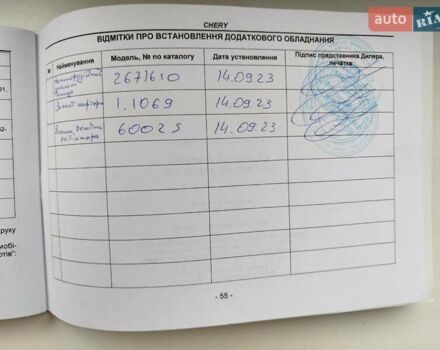 auto
RIA
CHERY
ВІДМІТКИ ПРО ВСТАНОВЛЕННЯ ДОДАТКОВОГО ОБЛАДНАННЯ
№ Найменування Модель, № по каталогу Дата установлення Підпис представника Дилера, печатка
2671610 14.09.23
Захист картера 1.1069 14.09.23
60025 14.09.23
руку
мобі-
- 55 -